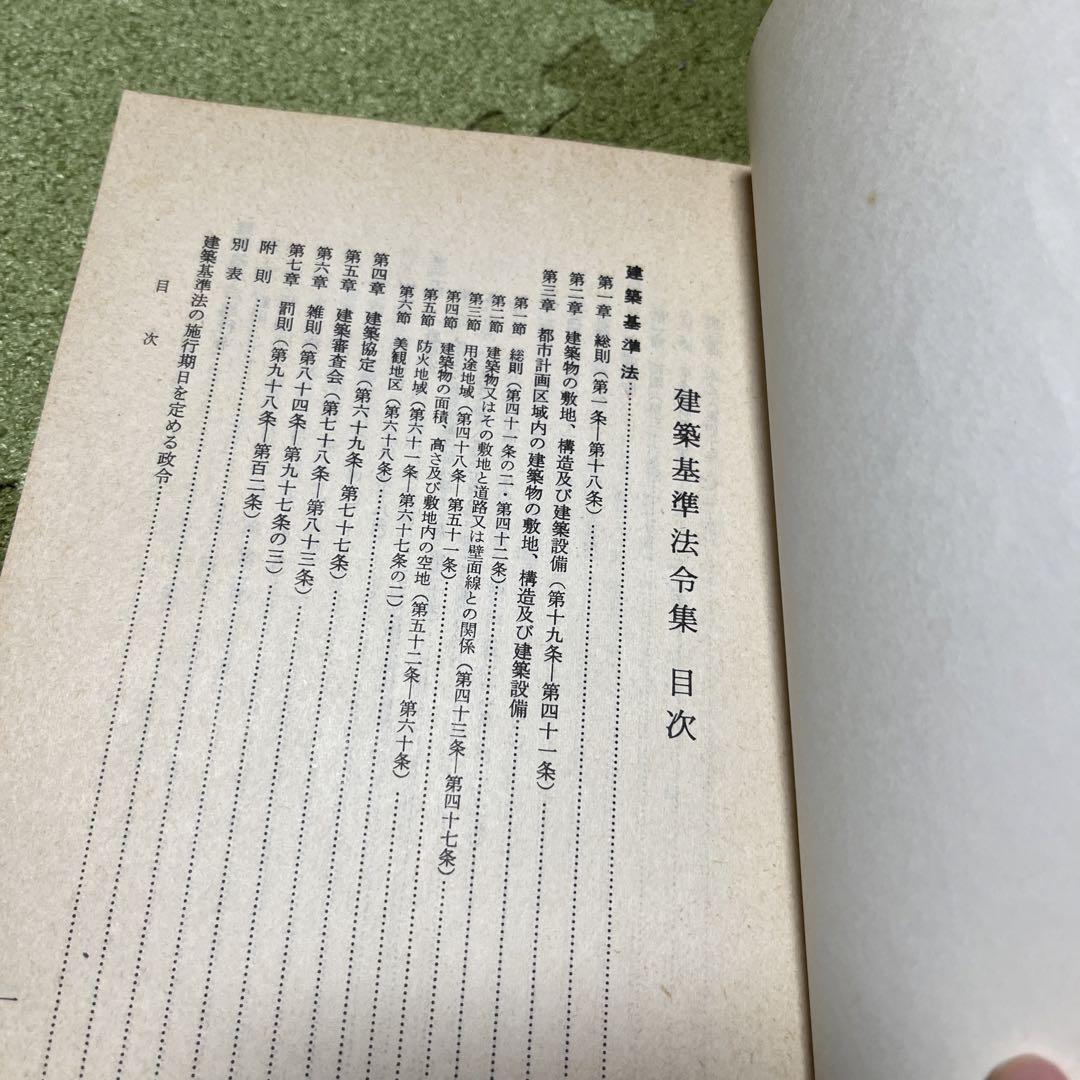 建築基準法令集 目次
建築基準法
第一章 総則(第一条―第十八条)
第二章 建築物の敷地、構造及び建築設備(第十九条―第四十一条)
第三章 都市計画区域内の建築物の敷地、構造及び建築設備
第一節 総則(第四十一条の二・第四十二条)
第二節 建築物又はその敷地と道路又は壁面線との関係(第四十三条―第四十七条)
第三節 用途地域(第四十八条―第五十一条)
第四節 建築物の面積、高さ及び敷地内の空地(第五十二条―第六十条)
第五節 防火地域(第六十一条―第六十七条の二)
第六節 美観地区(第六十八条)
第四章 建築協定(第六十九条―第七十七条)
第五章 建築審査会(第七十八条―第八十三条)
第六章 雑則(第八十四条―第九十七条の三)
第七章 罰則(第九十八条―第百二条)
附則
別表
建築基準法の施行期日を定める政令
目次
一